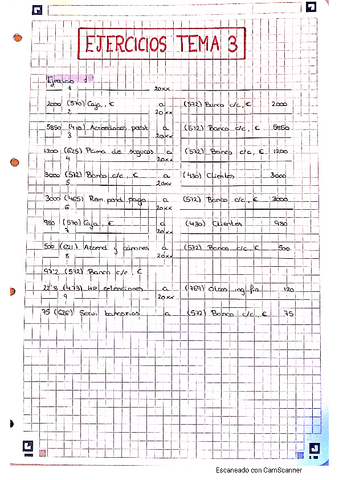 EJERCICIOS TEMA 3
Ejercicio 1
1 20xx
2000 (570) Caja, € a (572) Banco c/c, € 2000
2 20xx
5850 (410) Acreedores prest. a (572) Banco c/c, € 5850
3 20xx
1200 (625) Prima de seguros a (572) Banco c/c, € 1200
4 20xx
3000 (572) Banco c/c, € a (430) Clientes 3000
5 20xx
3000 (465) Rem. pend. pago a (572) Banco c/c, € 3000
6 20xx
(570) Caja, € a (430) Clientes
7 20xx
500 (621) Arrend y cánones a (572) Banco c/c, € 500
8 20xx
(572) Banco c/c, €
(473) HP retenciones a (769) Otros ing. fin. 120
9 20xx
75 (626) Servi bancarios a (572) Banco c/c, € 75
Escaneado con CamScanner